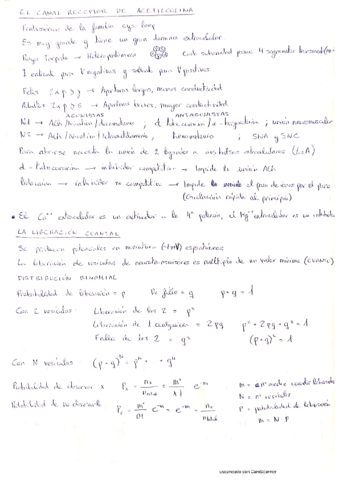 EL CANAL RECEPTOR DE ACETILCOLINA
Pentamérico de la familia cys-loop
Es muy grande y tiene un gran dominio extracelular.
Rayo Torpedo → Heteropentámero Cada subunidad posee 4 segmentos
I entrada para V negativos y salida para V positivos
Fetos 2α β γ δ → Aperturas largas, menor conductividad
Adultos 2α β δ ε → Aperturas breves, mayor conductividad
AGONISTAS ANTAGONISTAS
N1 → ACh/Nicotina/ d-tubocurarina / α-bungarotoxina ; unión neuromuscular
N2 → ACh/Nicotina/ hexametonio ; SNA y SNC
Para abrirse necesita la unión de 2 ligandos a
d-Tubocurarina → inhibidor competitivo → Impide la unión ACh
inhibidor no competitivo → Impide el paso de iones por el poro
• El Ca++ extracelular es un activador a la 4ª potencia, el Mg++ extracelular es un inhibidor
LA LIBERACIÓN CUANTAL
Se producen potenciales en miniatura espontáneos
La liberación de vesículas de neurotransmisores es múltiplo de un valor mínimo (CUANTO)
DISTRIBUCIÓN BINOMIAL
Probabilidad de liberación = p De fallo = q p + q = 1
Con 2 vesículas Liberación de las 2 = p²
Liberación de 1 cualquiera = 2pq p² + 2pq + q² = 1
Fallo de las 2 = q² (p+q)² = 1
Con N vesículas (p+q)ᴺ = pᴺ + + qᴺ
Probabilidad de observar x Pₓ = nₓ/n = mˣ/x! e⁻ᵐ m = nº medio
Probabilidad de no observarlo P₀ = m⁰/0! e⁻ᵐ = e⁻ᵐ = n₀/n N = nº vesículas
P = probabilidad de liberación
m = N P
Escaneado con CamScanner